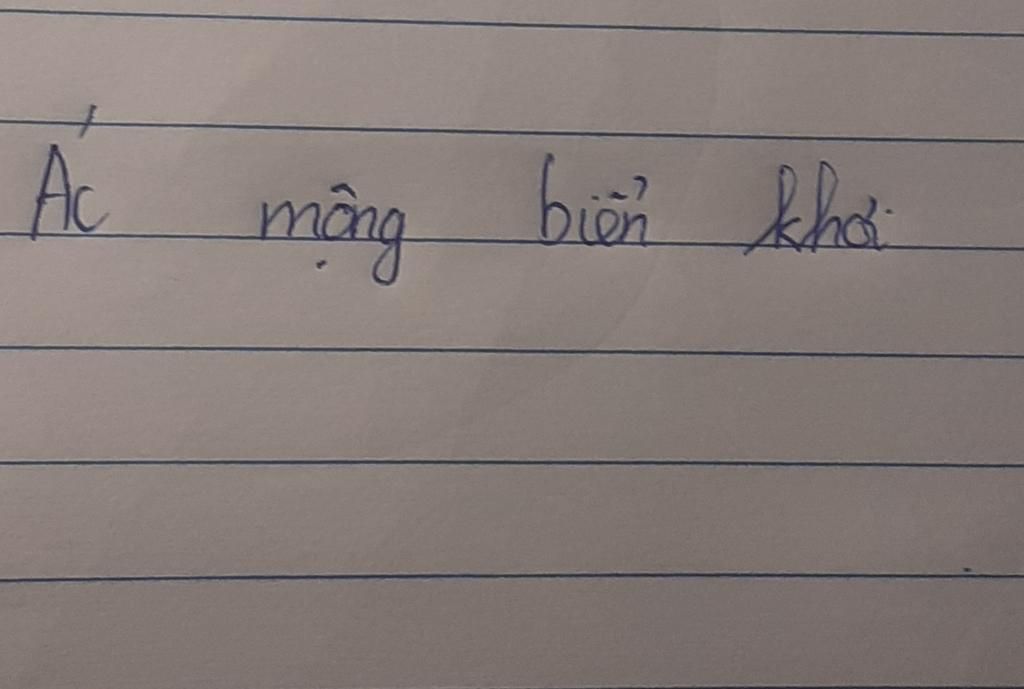 Ác mộng biển khơi